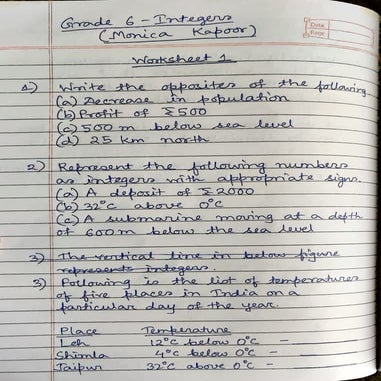 Grade 6 - Integers
(Monica Kapoor)
Date
Page
Worksheet 1
1) Write the opposites of the following.
(a) Decrease in population
(b) Profit of ₹500
(c) 500 m below sea level
(d) 25 km north
2) Represent the following numbers
as integers with appropriate signs.
(a) A deposit of ₹2000
(b) 32°C above 0°C
(c) A submarine moving at a depth
of 600m below the sea level
3) The vertical line in below figure
represents integers.
3) Following is the list of temperatures
of five places in India on a
particular day of the year.
Place Temperature
Leh 12°C below 0°C -
Shimla 4°C below 0°C -
Jaipur 32°C above 0°C -